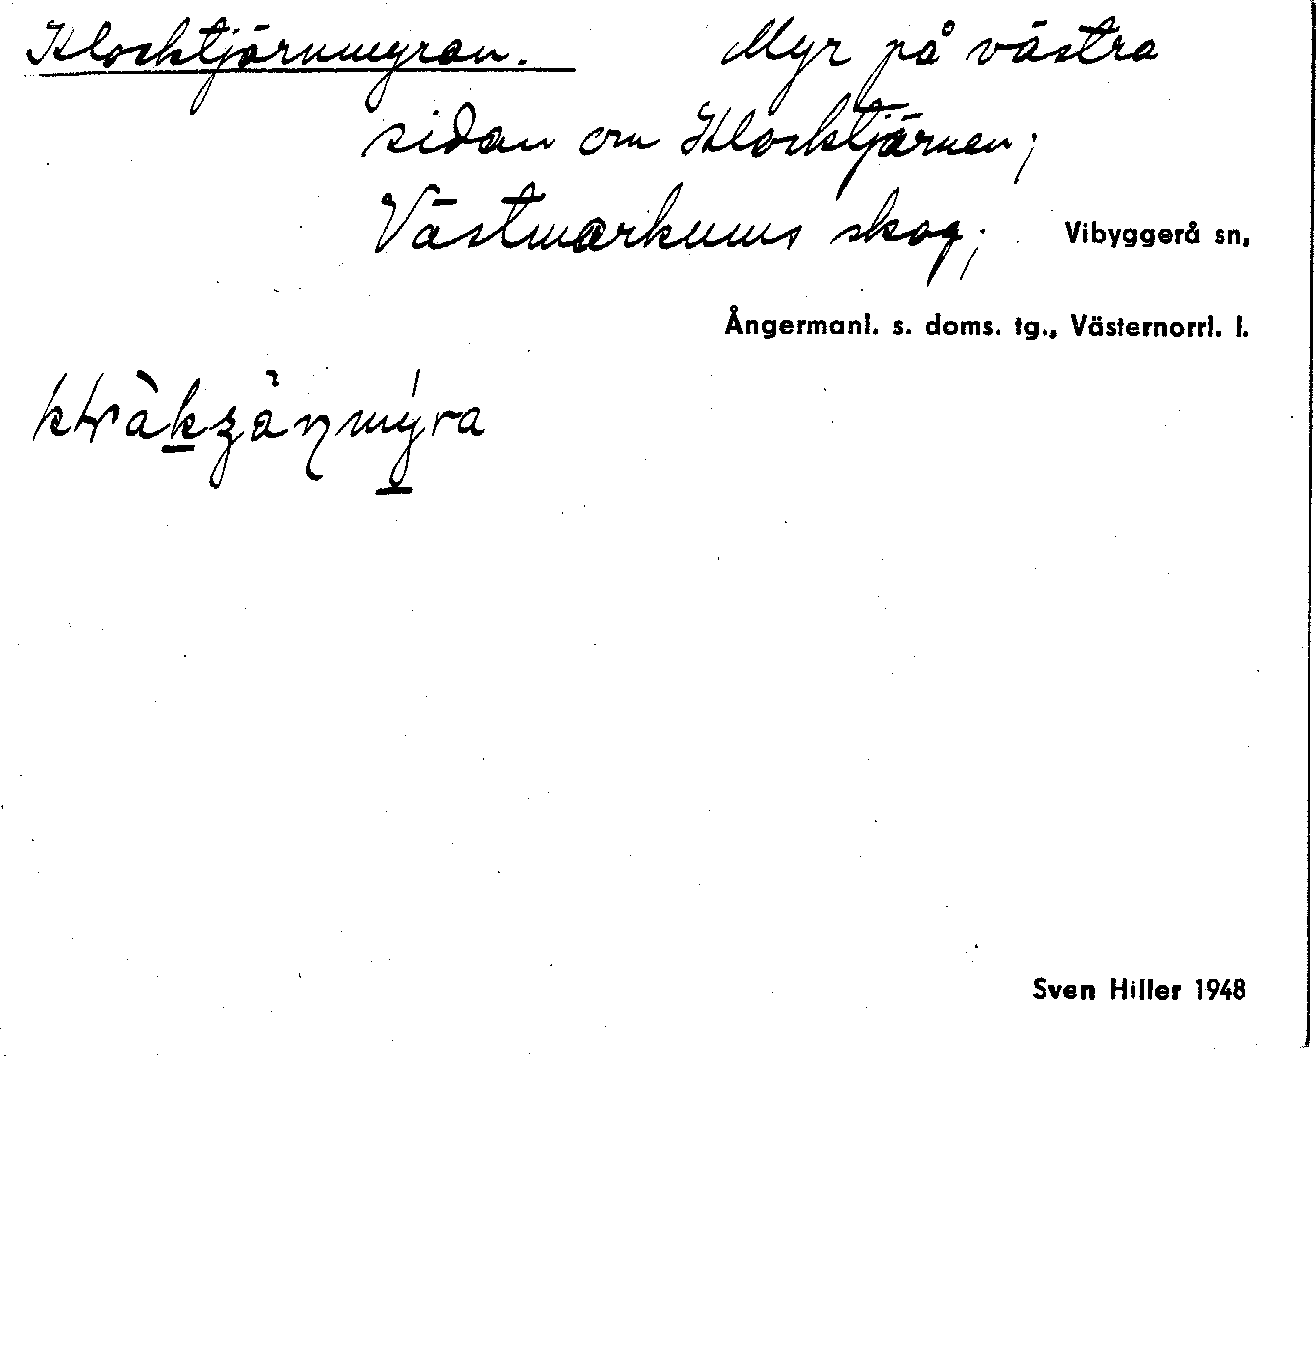 Klocktjärnmyran. Myr på västra
sidan om Klocktjärnen;
Västmarkums skog; Vibyggerå sn,
Ångermanl. s. doms. tg., Västernorrl. l.
Sven Hiller 1948